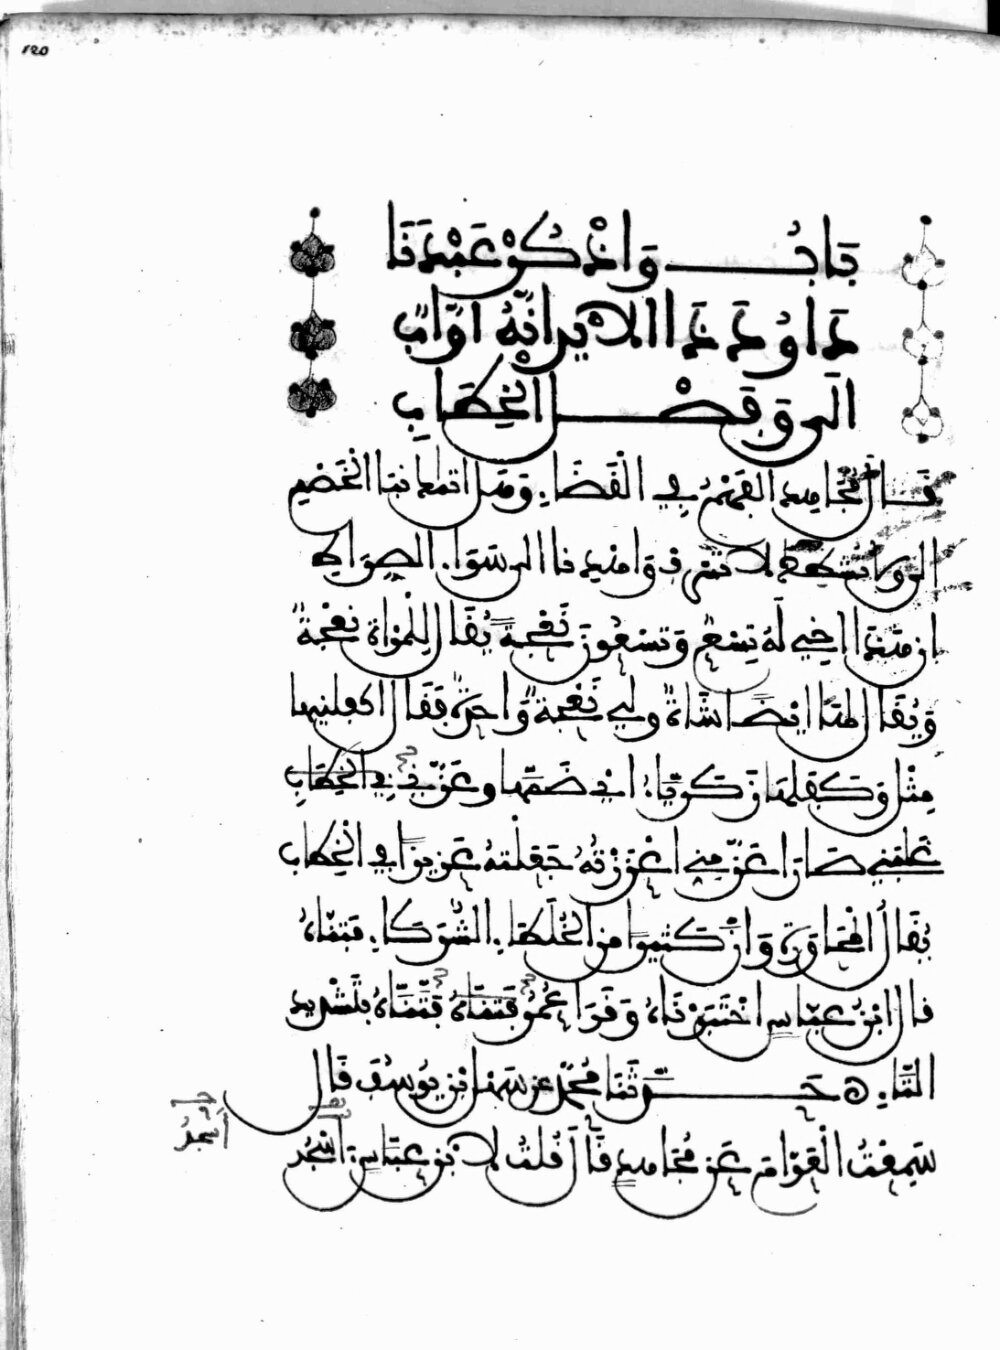 120
بَابُ وَاذْكُرْ عَبْدَنَا
دَاوُدَ ذَا الَايْدِ إنَّهُ أَوَّابٌ
الى وَفَصْلَ الْخِطَابِ
قَالَ مُجَاهِد الفَهْمُ فِي الْقَضَاءِ. وَهَل اتَاكَ نَبَأ الْخَصْمِ
الى ولا تُشْطِطْ لا تُسْرِف وَاهْدِنا الى سَوَاءِ الصِّرَاطِ
ان هَذَا اخِي لَهُ تِسْعٌ وَتِسْعُونَ نَعْجَةً يُقَالُ لِلْمَرْأَةِ نَعْجَةٌ
وَيُقَالُ لهَا ايْضًا شَاةٌ وَلِي نَعْجَةٌ وَاحِدَةٌ فَقَالَ اكْفِلْنِيهَا
مِثْلُ وَكَفَلَهَا زَكَرِيَّاءُ اي ضَمَّهَا وعَزَّنِي فِي الْخِطَابِ
غَلَبَنِي صَارَ اعَزَّ مِنِّي اعْزَزْتُهُ جَعَلْتُهُ عَزِيزًا فِي الْخِطَابِ
يُقَالُ الْمُحَاوَرَةُ وَانَّ كَثِيرًا مِنَ الْخُلَطَاءِ. الشُّرَكَاءِ. فَتَنَّاهُ
قال ابْنُ عَبَّاسٍ اخْتَبَرْنَاهُ وَقَرَأَ عُمَرُ فَتَنَّاهُ فَتَّنَّاهُ بِتَشْدِيدِ
التَّاءِ. ه حَدَّثَنَا مُحَمَّدٌ عن سَهْلُ ابْنُ يُوسُفَ قَال
سَمِعْتُ الْعَوَّامَ عَنْ مُجَاهِدٍ قَالَ قُلْتُ لابْنِ عَبَّاسٍ أنَسْجُدُ
أَسْجُدُ